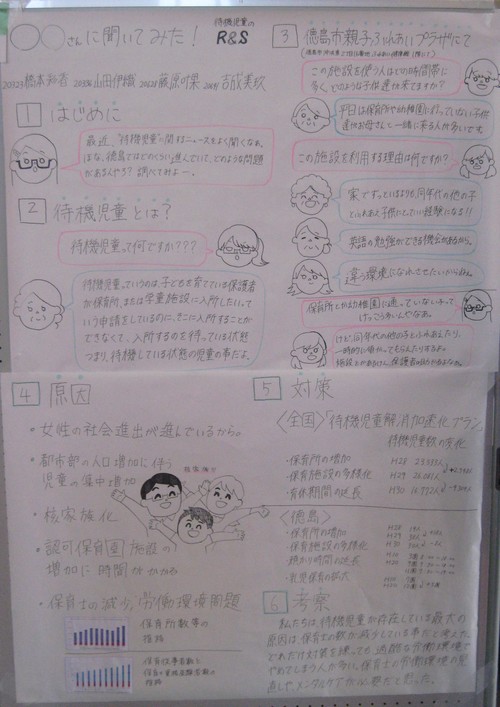 〇〇さんに聞いてみた！
待機児童の
R&S
1 はじめに
最近、"待機児童"に関するニュースをよく聞くなぁ。
ほな、徳島ではどのくらい進んでいて、どのような問題
があるんやろ？調べてみよー。
2 待機児童とは？
待機児童って何ですか？？？
待機児童っていうのは、子どもを育てている保護者
が保育所、または学童施設に入所したいってい
う申請をしているのに、そこに入所することが
できなくて、入所するのを待っている状態
つまり、待機している状態の児童の事だよ。
3 徳島市親子ふれあいプラザにて
この施設を使う人はどの時間帯に
多くどのような子供達が来てますか？
平日は保育所や幼稚園に行っていない子供
達がお母さんと一緒に来る人が多いです
この施設を利用する理由は何ですか？
家でずっといるよりも、同年代の他の子
とふれあえ子供にとていい経験になる!!
英語の勉強ができる機会があるから。
違う環境になれさせたいからよね。
保育所とか幼稚園に通っていない子って
けっこう多いんやなぁ。
けど、同年代の他の子とふれあえたり、
一時的に預かってもらえたりするよ。
4 原因
・女性の社会進出が進んでいるから。
・都市部の人口増加に伴う
児童の集中増加
・核家族化
・認可保育園施設の
増加に時間がかかる
・保育士の減少、労働環境問題
保育所数等の
推移
5 対策
〈全国〉「待機児童解消加速化プラン」
待機児童数の変化
・保育所の増加
・保育施設の多様化
・育休期間の延長
H28 23,553人
H29 26,081人
〈徳島〉
・保育所の増加
・保育施設の多様化
・預かり時間の延長
・乳児保育の拡大
6 考察
私たちは、待機児童が存在している最大の
原因は、保育士の数が減少している事だと考えた。
どれだけ対策を練っても、過酷な労働環境で
やめてしまう人が多い。保育士の労働環境の見
直しやメンタルケアが必要だと思った。